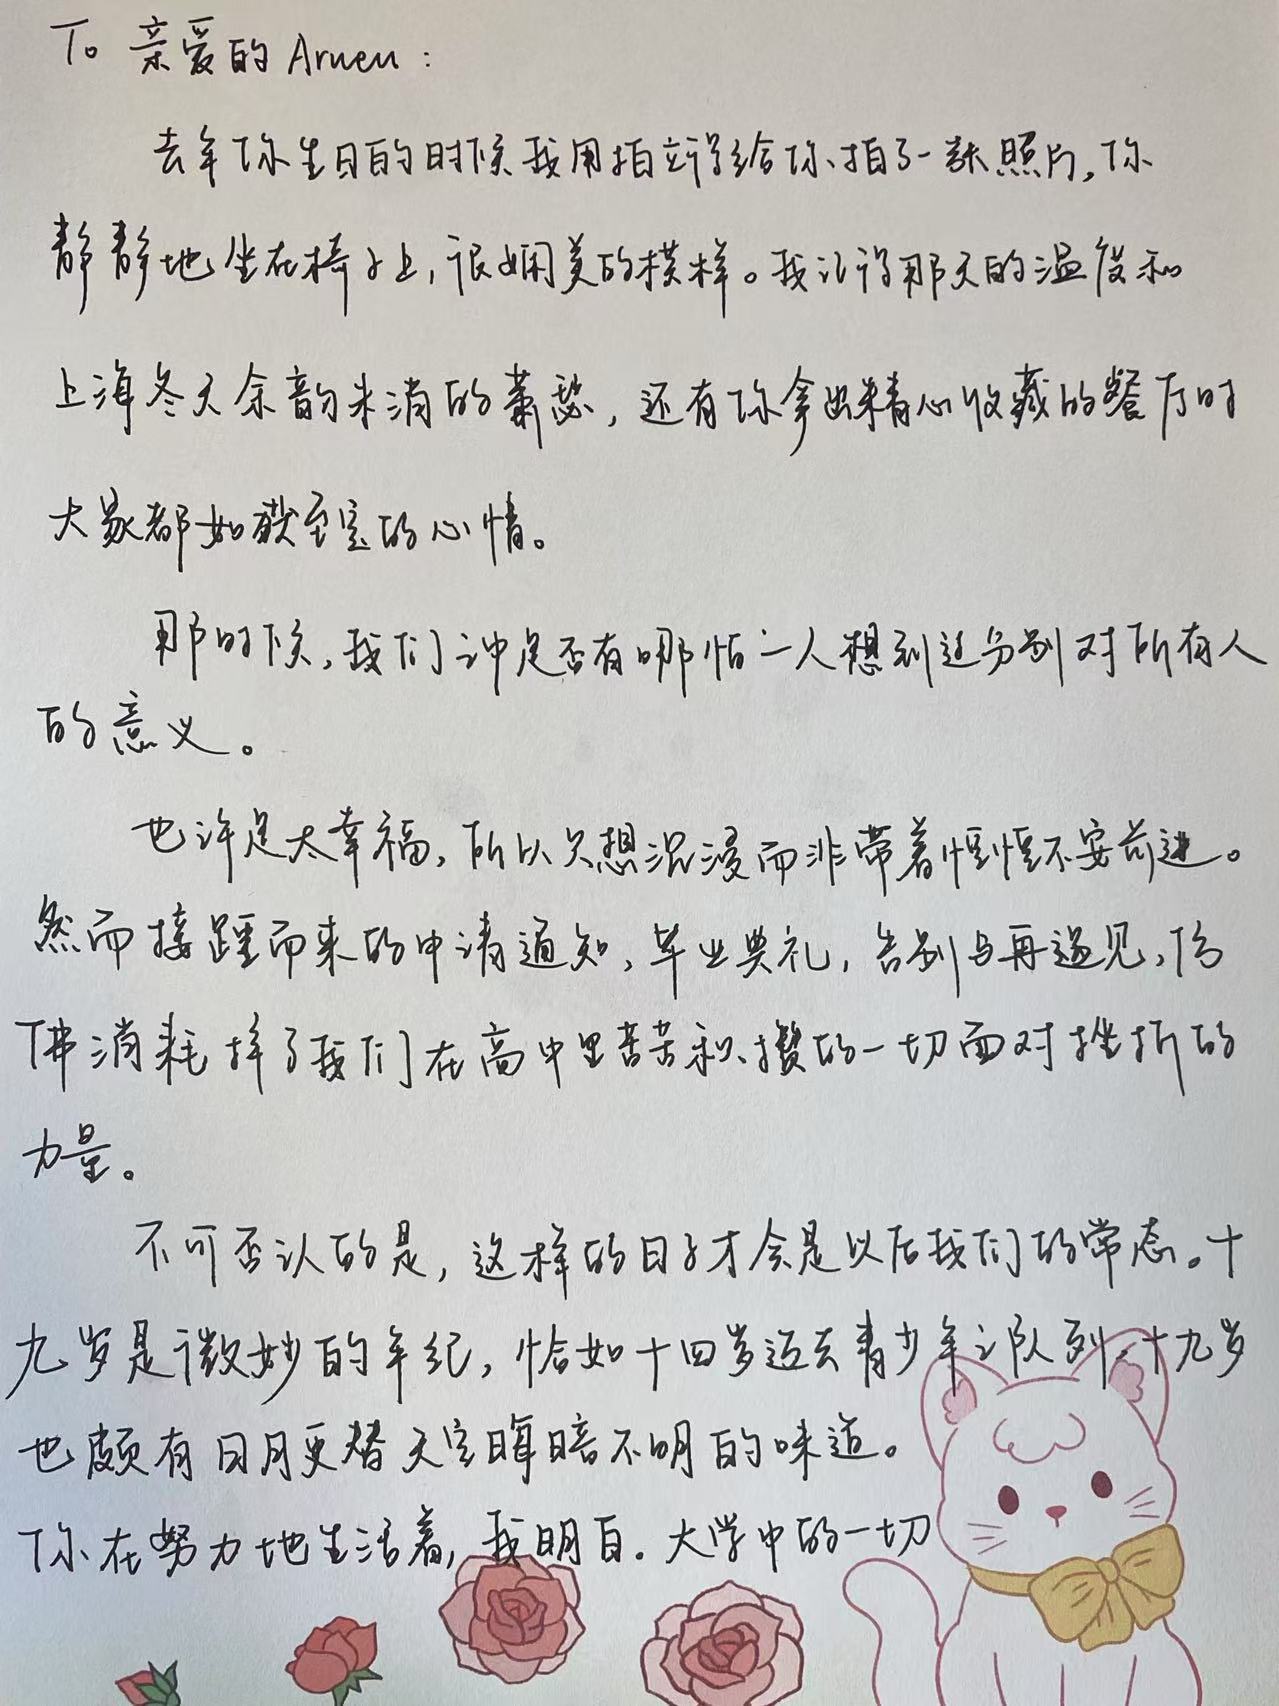 To 亲爱的 Arwen：
去年你生日的时候我用拍立得给你拍了一张照片，你
静静地坐在椅子上，很娴美的模样。我记得那天的温度和
上海冬天余韵未消的萧瑟，还有你拿出精心收藏的餐厅时
大家都如获至宝的心情。
那时候，我们之中是否有哪怕一人想到过分别对所有人
的意义。
也许是太幸福，所以只想沉浸而非带着惶惶不安前进。
然而接踵而来的申请通知，毕业典礼，告别与再遇见，仿
佛消耗掉了我们在高中里苦苦积攒的一切面对挫折的
力量。
不可否认的是，这样的日子才会是以后我们的常态。十
九岁是微妙的年纪，恰如十四岁迈去青少年之队列，十九岁
也颇有日月更替天空晦暗不明的味道。
你在努力地生活着，我明白。大学中的一切